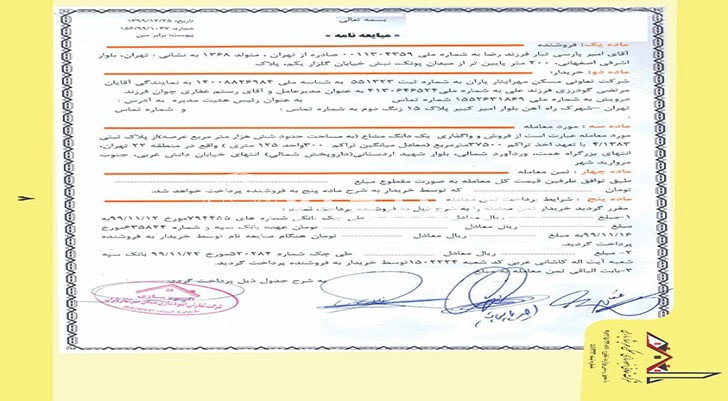 بسمه تعالی
« مبایعه نامه »
تاریخ: ۱۳۹۹/۱۲/۲۵
شماره: ۱۵۶/۹۹/۱۰۲۷
پیوست: برابر متن
ماده یک: فروشنده
آقای امیر پارسی تبار فرزند رضا به شماره ملی ۰۰۱۱۳۰۴۳۵۹ صادره از تهران ، متولد ۱۳۶۸ به نشانی : تهران، بلوار
اشرفی اصفهانی، ۲۰۰ متر پایین تر از میدان پونک، نبش خیابان گلزار یکم، پلاک
ماده دو: خریدار
شرکت تعاونی مسکن مهرآیثار یاران به شماره ثبت ۵۵۱۳۲۳ به شناسه ملی ۱۴۰۰۸۸۲۶۹۸۴ به نمایندگی آقایان
مرتضی گودرزی فرزند علی به شماره ملی ۴۱۳۰۶۴۶۵۲۴ به عنوان مدیرعامل و آقای رستم غفاری جوان فرزند
درویش به شماره ملی ۱۵۵۲۶۳۱۸۶۹ شماره تماس به عنوان رئیس هیئت مدیره به آدرس :
تهران –شهرک راه آهن بلوار امیر کبیر پلاک ۱۵ زنگ دوم به شماره تماس : و شماره تماس
ماده سه : مورد معامله
مورد معامله عبارت است از فروش و واگذاری یک دانگ مشاع (به مساحت حدود شش هزار متر مربع عرصه)از پلاک ثبتی
۴/۱۳۸۳ با تعهد اخذ تراکم ۳۷۵۰۰مترمربع (معادل میانگین تراکم ۳۰۰واحد ۱۲۵ متری ) واقع در منطقه ۲۲ تهران،
انتهای بزرگراه همت، وردآورد شمالی، بلوار شهید اردستانی(داروپخش شمالی) انتهای خیابان دانش غربی، جنوب
مروارید شهر
ماده چهار: ثمن معامله
طبق توافق طرفین قیمت کل معامله به صورت مقطوع مبلغ
تومان که توسط خریدار به شرح ماده پنج به فروشنده پرداخت خواهد شد.
ماده پنج : شرایط پرداخت ثمن معامله
مقرر گردید خریدار ثمن معامله را به شرح ذیل به فروشنده پرداخت نماید :
۱-مبلغ ریال معادل طی چک بانکی شماره های ۷۹۴۴۵۵مورخ ۹۹/۱۱/۱۲به
مبلغ ریال معادل تومان عهده بانک سپه و شماره مورخ
۹۹/۱۱/۱۶به مبلغ ریال معادل تومان هنگام مبایعه نام توسط خریدار به فروشنده
پرداخت گردید.
۲- مبلغ ریال معادل طی چک شماره ۵۲۰۲۸۴مورخ ۹۹/۱۱/۲۲ بانک سپه
شعبه آیت اله کاشانی غربی کد شعبه ۱۵۰۲۳۲۴توسط خریدار به فروشنده پرداخت گردید.
۳-بابت الباقی ثمن معامله به مبلغ به شرح جدول ذیل پرداخت گردید.